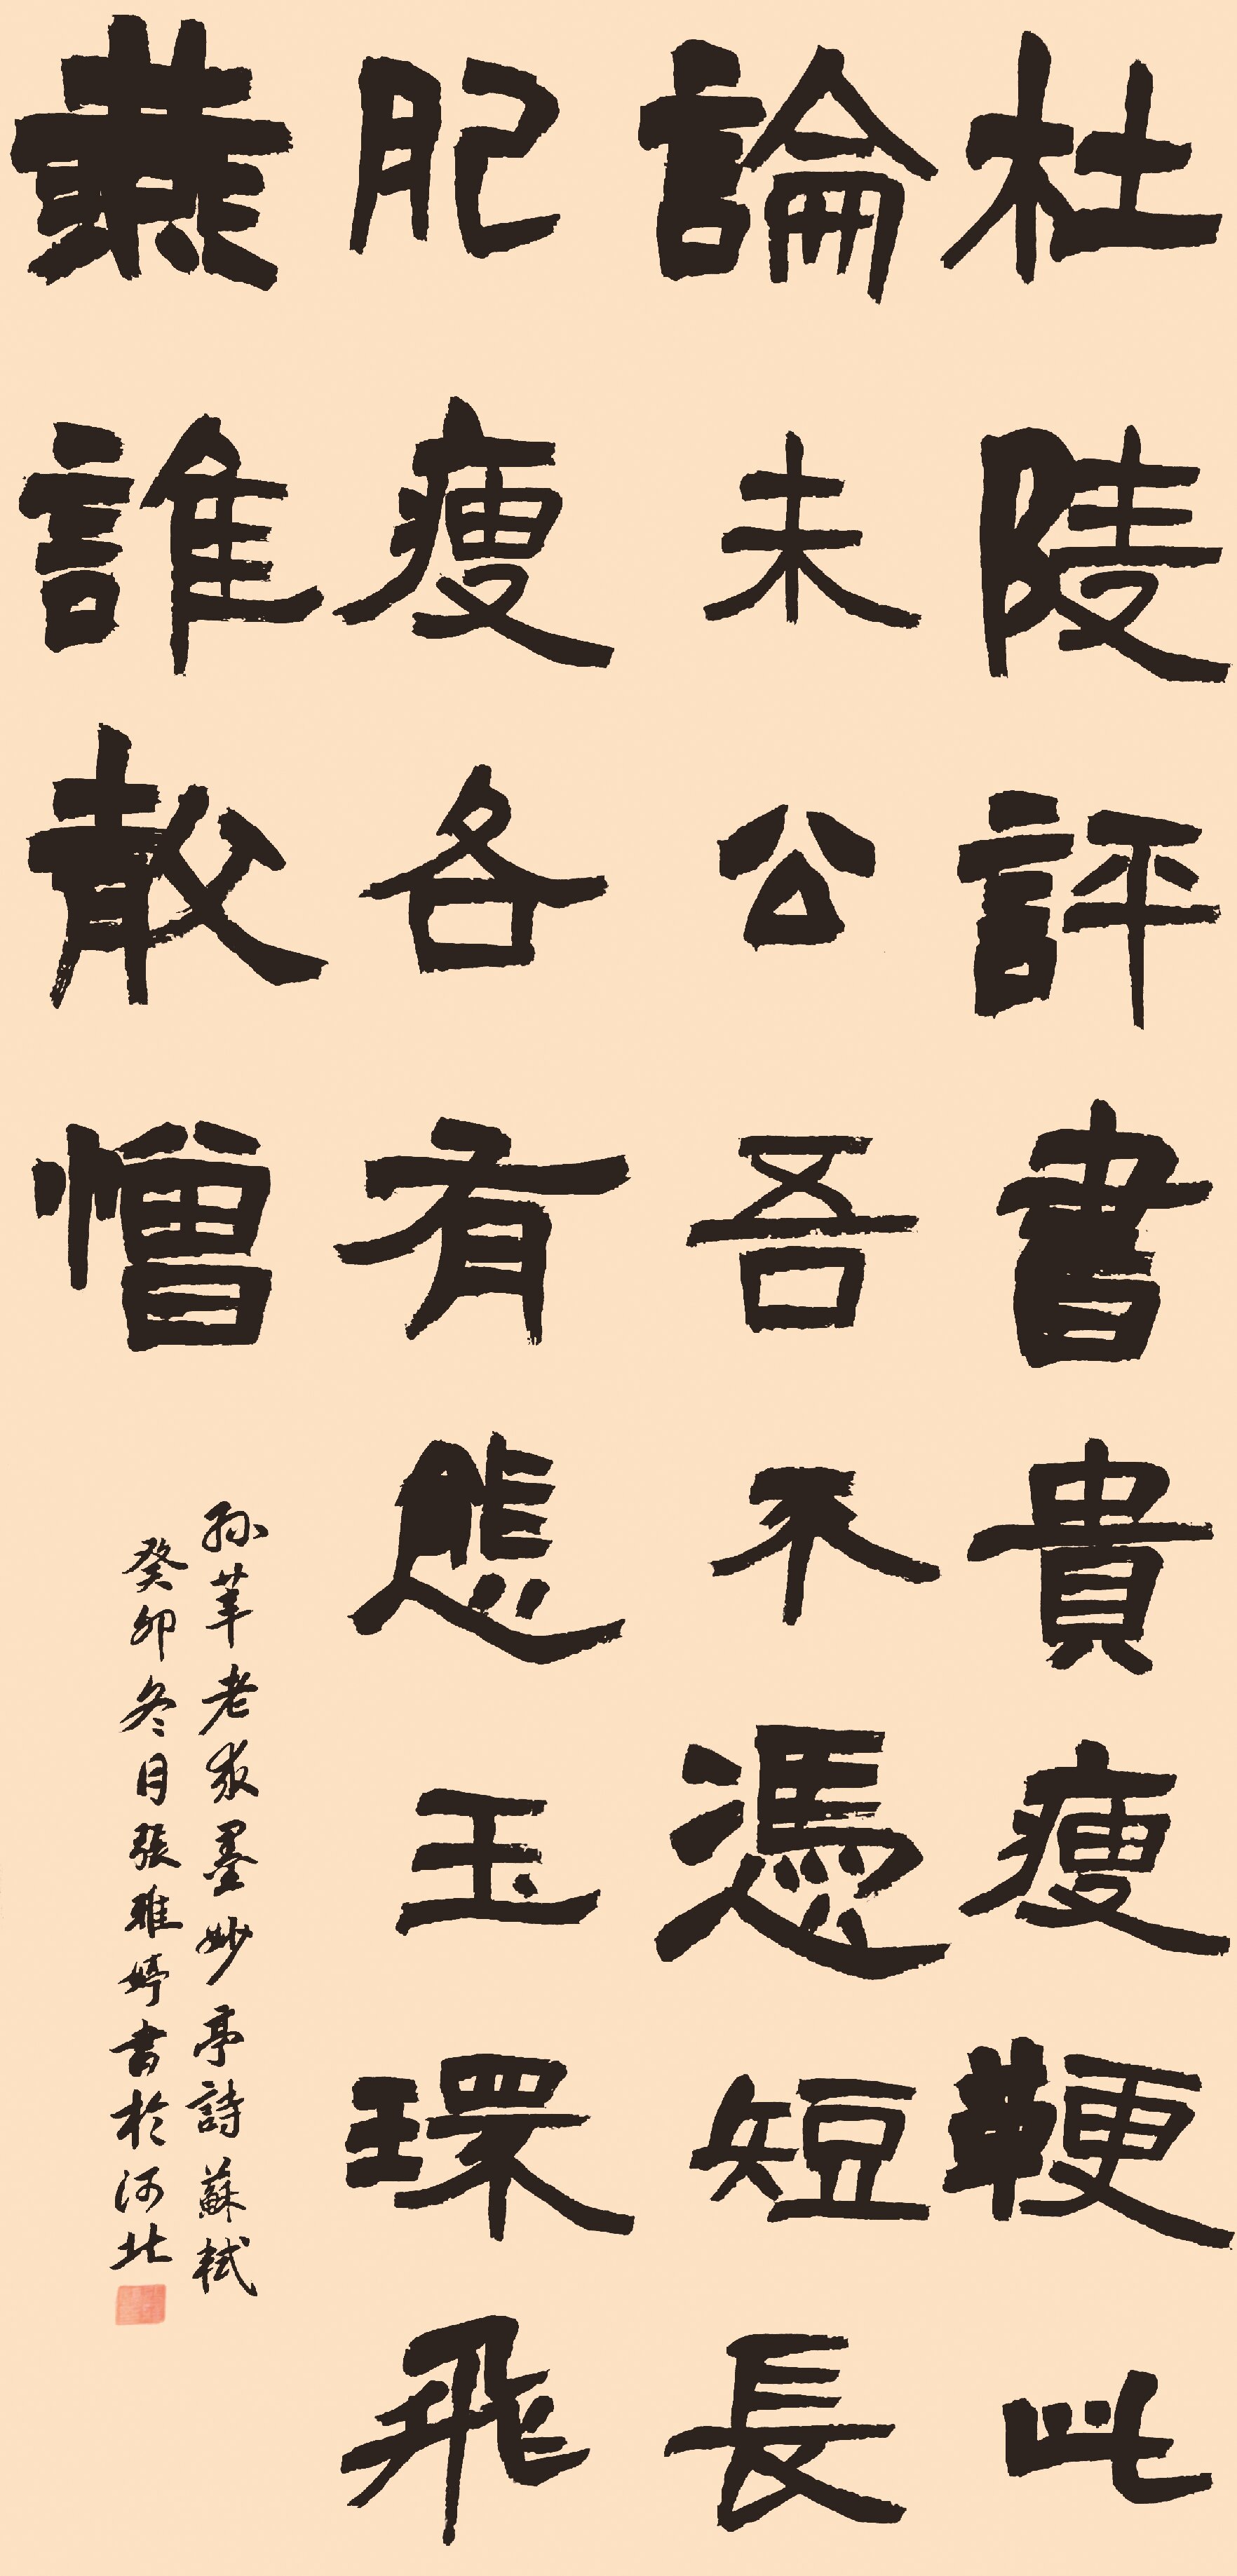 杜陵評書貴瘦鞕此
論未公吾不憑短長
肥瘦各有態玉環飛
燕誰敢憎
孫莘老求墨妙亭詩蘇軾
癸卯冬月張雅婷書於河北